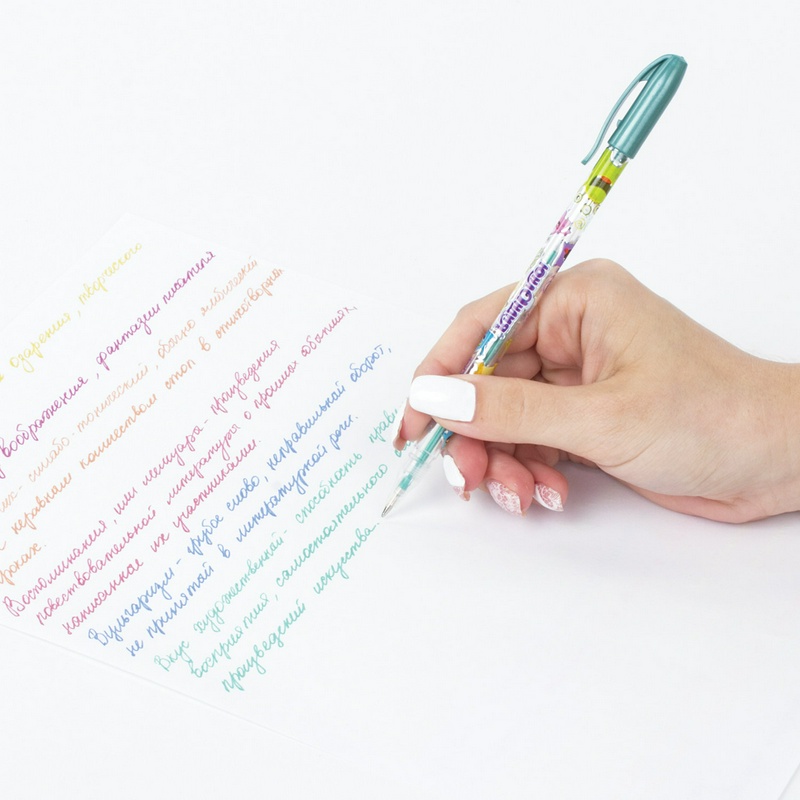 озарения, творческого
воображения, фантазии писателя
силлабо-тонический, обычно ямбический
с неравным количеством стоп в стихотворных
строках.
Воспоминания, или мемуары - произведения
повествовательной литературы о прошлых событиях,
написанное их участниками.
Вульгаризм - грубое слово, неправильный оборот,
не принятой в литературной речи.
Вкус художественный - способность прави
восприятия, самостоятельного
произведений искусства.